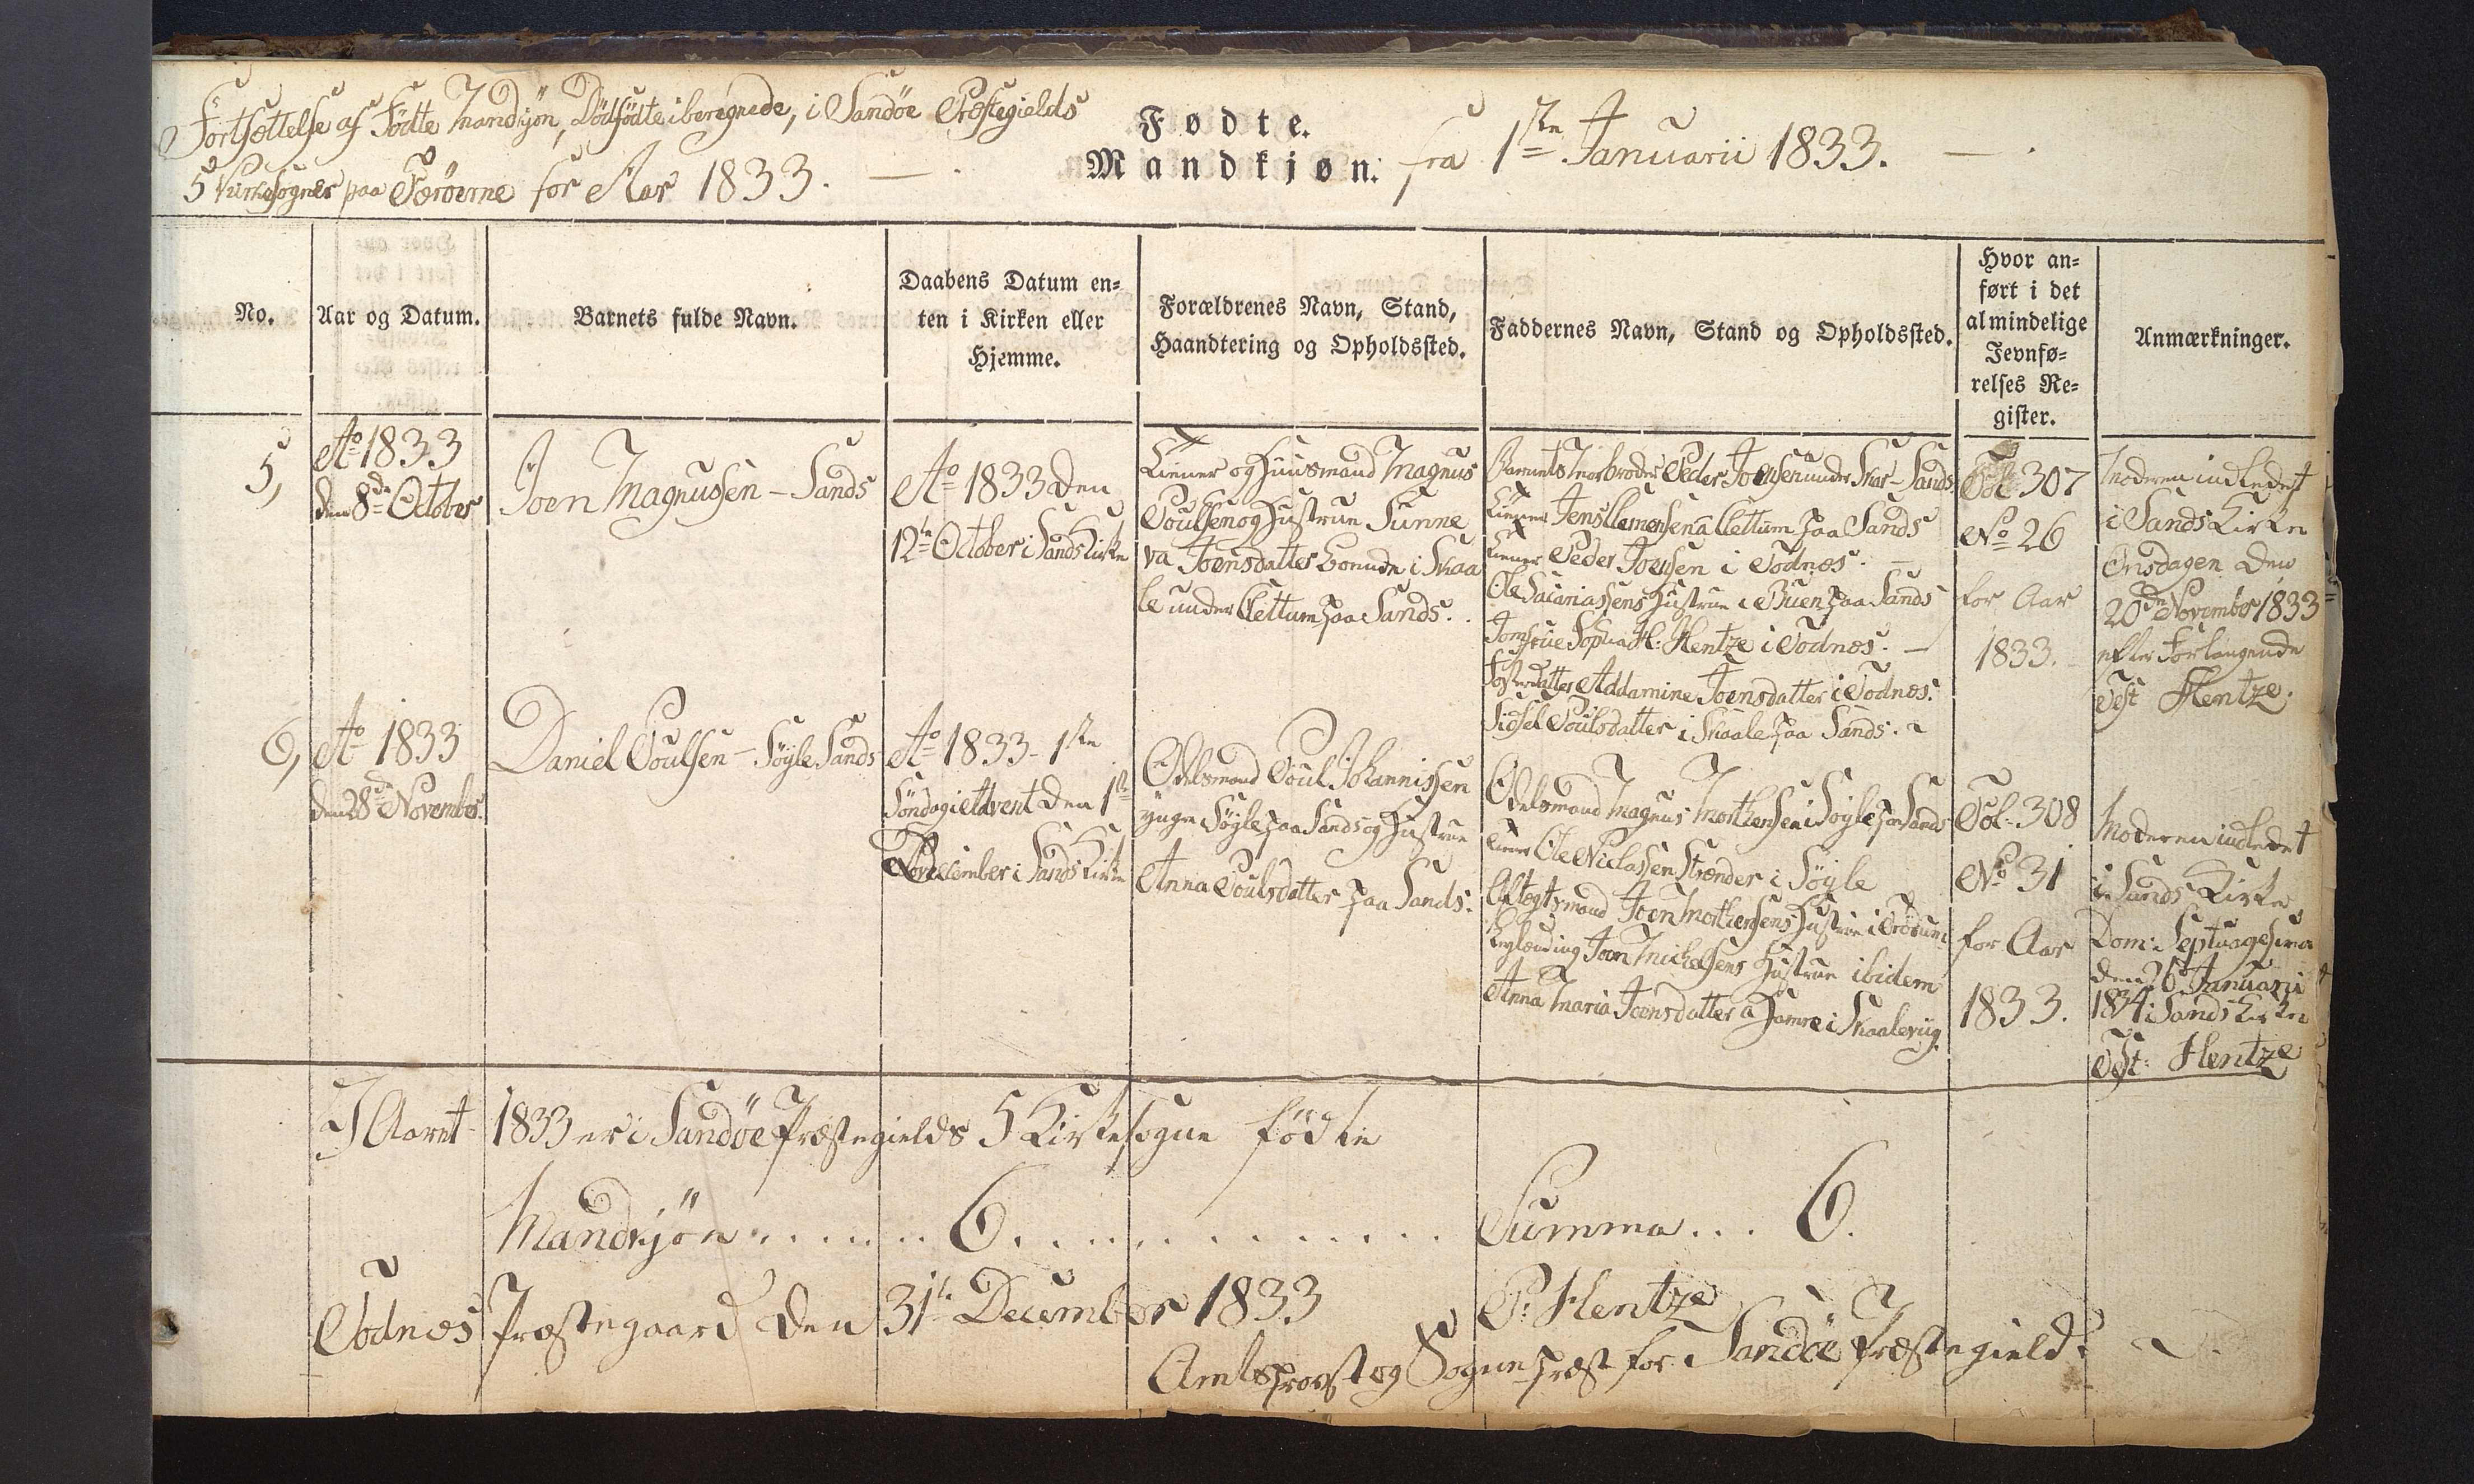 Fortsættelse af Fødte Mandkjön, Dödfödte iberegnede, i Sandöe Præstegields
5 Kirkesogner paa Færöerne for Aar 1833. —
Fødte.
Mandkjøn. fra 1ste Januarii 1833. —
No.
Aar og Datum.
Barnets fulde Navn.
Daabens Datum en=
ten i Kirken eller
Hjemme.
Forældrenes Navn, Stand,
Haandtering og Opholdssted.
Faddernes Navn, Stand og Opholdssted.
Hvor an=
ført i det
almindelige
Jevnfø=
relses Re=
gister.
Anmærkninger.
5,
Ao 1833
den 8de October
Joen Magnussen – Sands
Ao 1833 den
12te October i Sands Kirke
Tiener og Huusmand Magnus
Poulsen og Hustrue Sunne
va Joensdatter boende i Skaa
le under Clettum paa Sands.
Barnets Morbroder Peder Joensen under Skar – Sands
Tiener Jens Clemensen a Clettum paa Sands
Tiener Peder Joensen i Todnes. —
Ole Sacariassens Hustrue i Buen paa Sands
Jomfrue Sophia H: Hentze i Todnes. —
Fosterdatter Addamine Joensdatter i Todnes.
Sidsel Poulsdatter i Skaale paa Sands.
Fol 307
No 26
for Aar
1833.
Moderen indledet
i Sands Kirke
Onsdagen den
20de November 1833
efter Forlangende
Test Hentze.
6,
Ao 1833
den 28de November.
Daniel Poulsen – Söyle Sands
Ao 1833 – 1ste
Söndag i Advent den 1ste
December i Sands Kirke
Odelsmand Poul Johannissen
yngre Söyle paa Sands og Hustrue
Anna Poulsdatter paa Sands.
Odelsmand Magnus Morthensen i Söyle paa Sands
Tiener Ole Niclassen Strender i Söyle
Aftegtsmand Joen Morthensens Hustrue i Trödum
Joen Michelsens Hustrue ibidem
Anna Maria Joensdatter a Hamre i Skaalevüg.
Fol. 308
No 31
for Aar
1833.
Moderen indledet
i Sands Kirke
Dom: Septuagesima
den 26 Januarii
1834 i Sands Kirke
Test: Hentze
I Aaret 1833 er i Sandöe Præstegields 5 Kirkesogne födte
Mandkjön ...... 6 ............ Summa ... 6.
Todnes Præstegaard den 31te December 1833 P: Hentze
Amtsprovst og Sognepræst for Sandöe Præstegield.